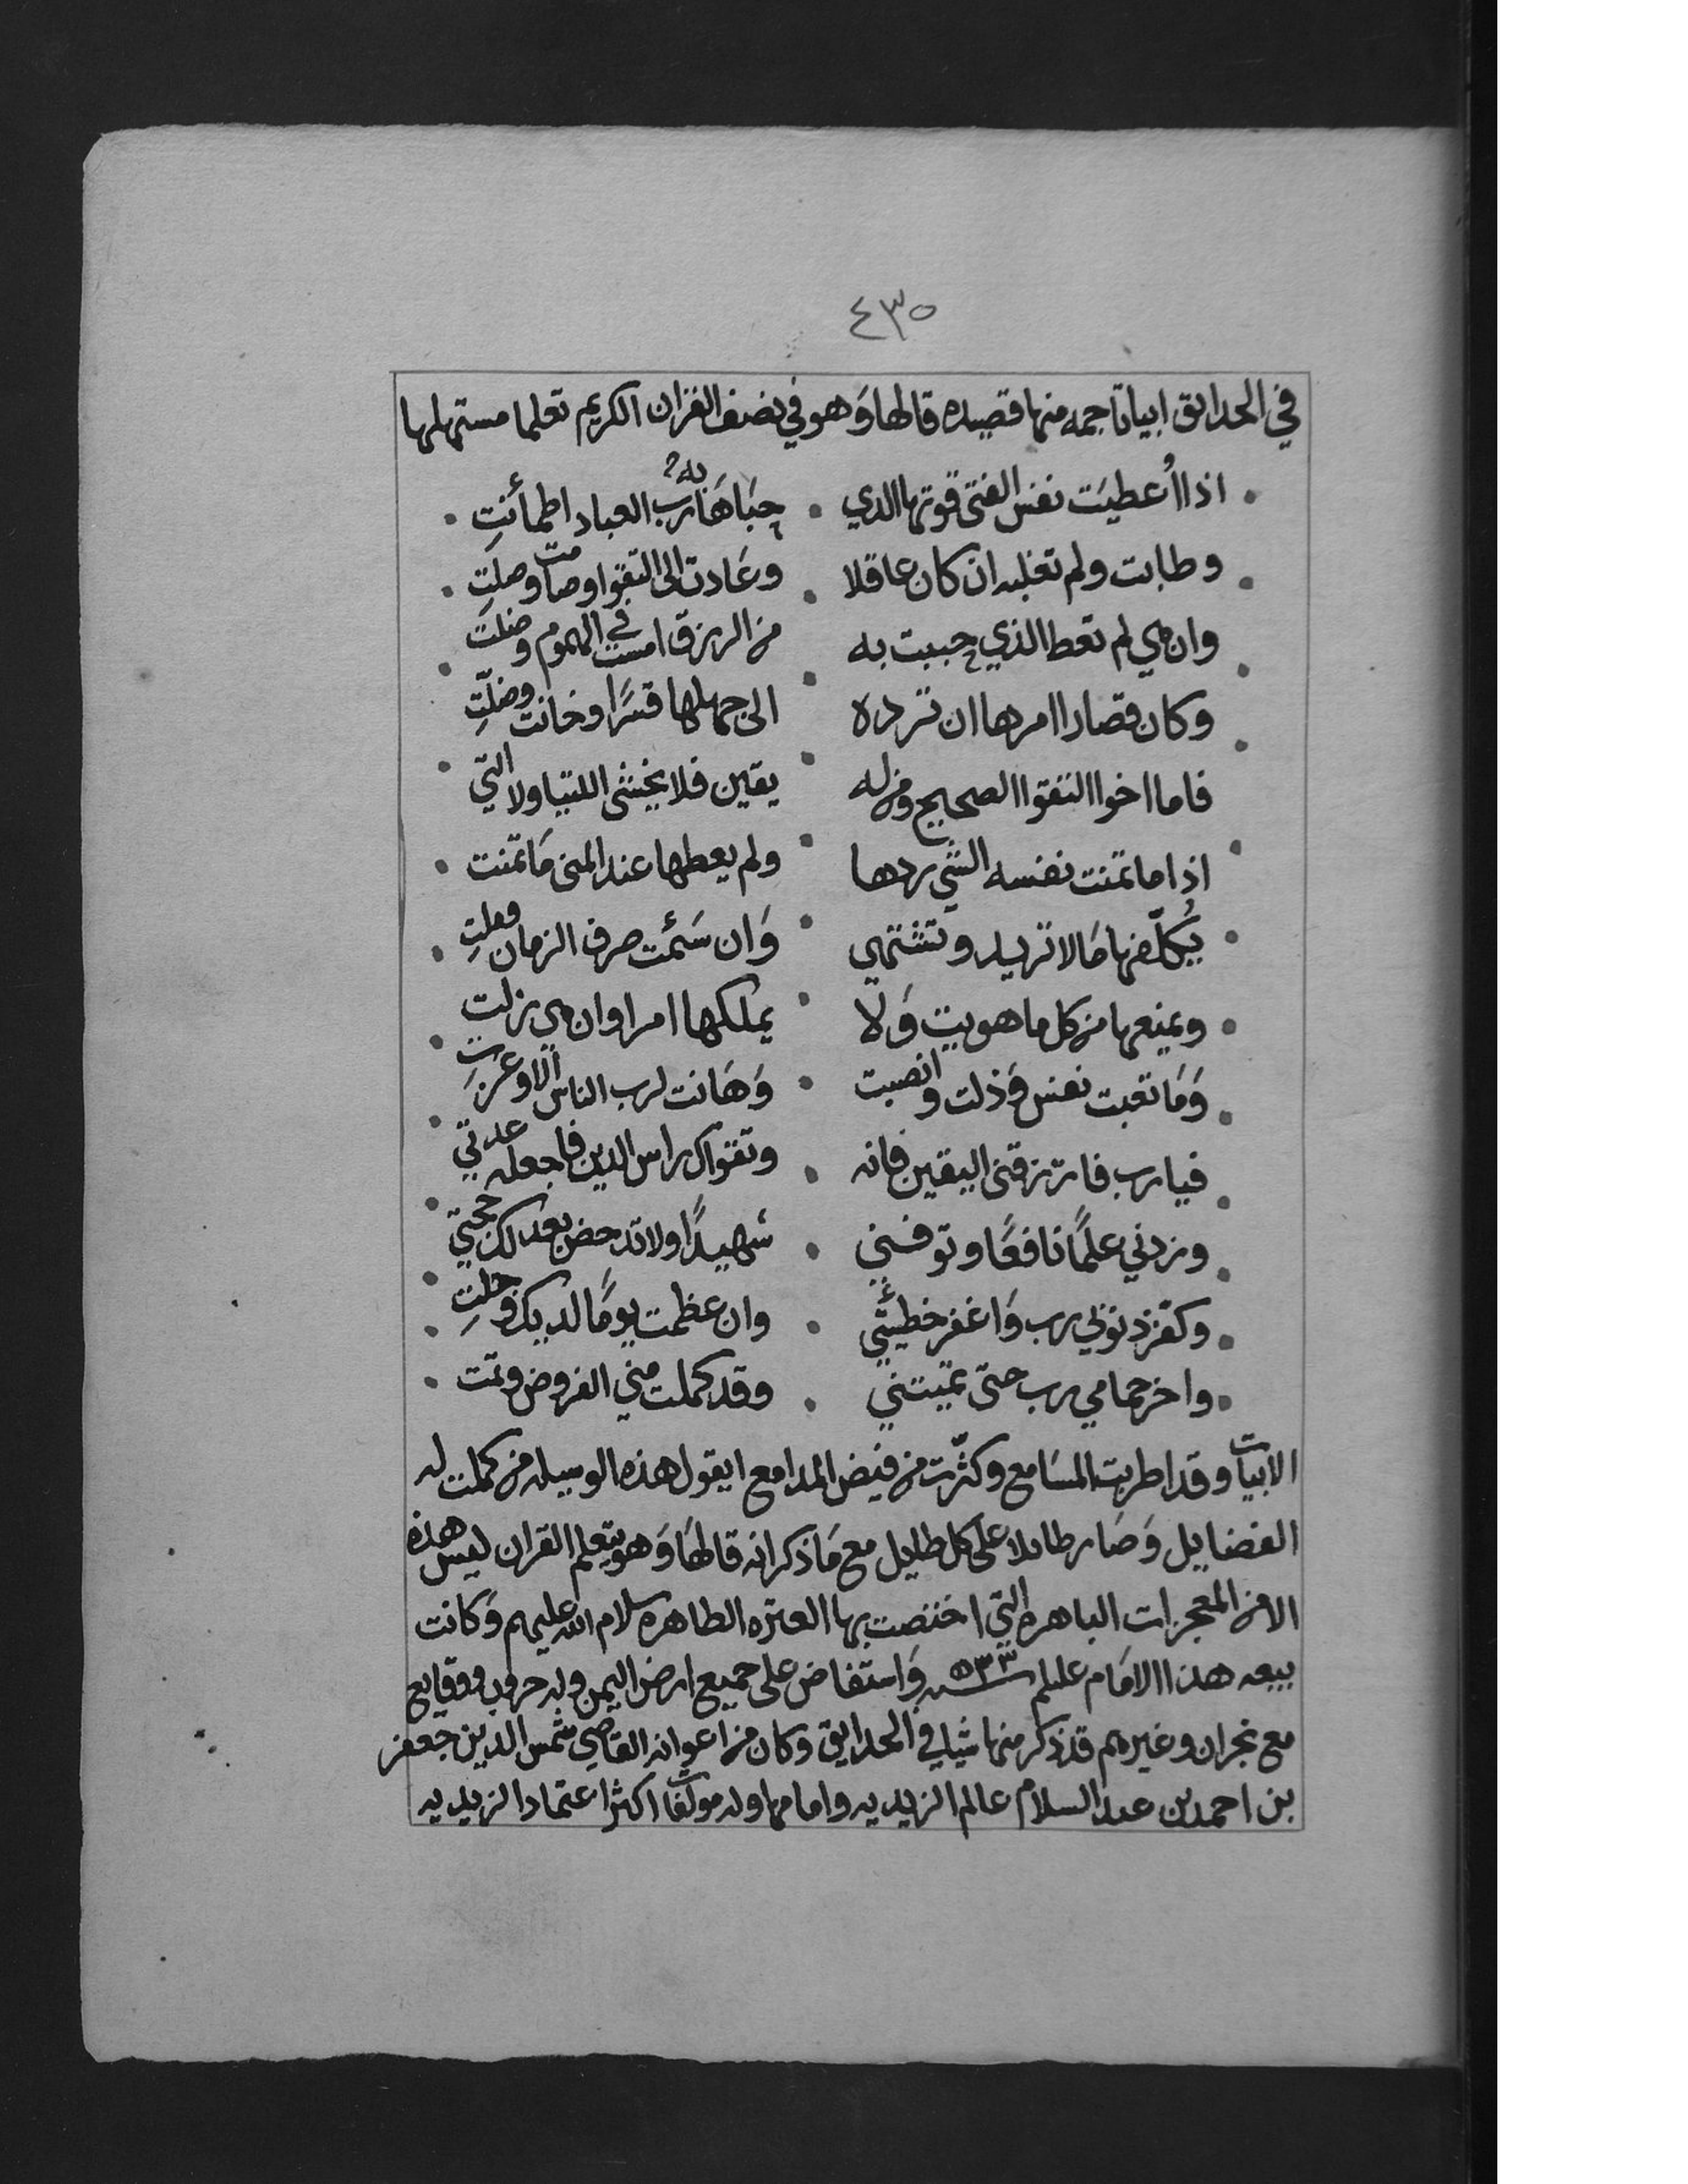 ٤٣٥
في الحدايق ابياتا جمه منها قصيده قالها وَهو في نصف القران الكريم تعلما مستهلها
اذا اُعطيَت نفس الفتى قوتها الذي • حبَاهَا به رب العباد اطمأنتِ
وطابت ولم تغلبه ان كان عاقلا • وعَادت الى التقوا وصامت وصلتِ
وان هي لم تعط الذي حببت به • من الرزق امست في الهموم وضلت
وكان قصارا امرها ان ترده • الى جهلها قسرًا وخانت وضلّتِ
فاما اخوا التقوا الصحيح ومن له • يقين فلا يخشى اللتيا ولا التي
اذا ما تمنت نفسه الشي ردها • ولم يعطها عند المنى مَا تمّنت
يُكلّفها مَا لا تريد وتشتهي • وَان سَئمت صرف الزمان وملتِ
ويمنعها من كل ما هويت وَلا • يملكها امرا وان هي زلت
وَمَا تعبت نفس وَذلت وانصبت • وَهَانت لرب الناس الا وعزتِ
فيا رب فارزقني اليقين فانه • وتقواك راس الدين فاجعله عدتي
وزدني علمًا نافعًا وتوفني • شهيدًا ولا تدحض بعدلك حجتي
وكفر ذنوبي رب وَاغفر خطيئتي • وان عظمت يومًا لديك وجلتِ
واخر حمامي رب حتى تميتني • وقد كملت مني الفروض وتمت
الابيات وقد اطربت المسَامع وكثّرت من فيض المدامع ايقول هذه الوسيله من كملت له
الفضايل وَصَار طايلا على كل طايل مع مَا ذكر انه قالهَا وَهو يتعلم القران ليس هذه
الا من المعجزات الباهره التي اختصت بها العتره الطاهره سلام الله عليهم وَكانت
بيعه هذا الامَام عليلم سنه ٥٣٣ وَاستفاض على جميع ارض اليمن وله حروب ووقايع
مع نجران وغيرهم قد ذكر منها شيا في الحدايق وكان من اعوانه القاضي شمس الدين جعفر
بن احمد بن عبد السلام عالم الزيديه وامامها وله مولفات اكثر اعتماد الزيديه